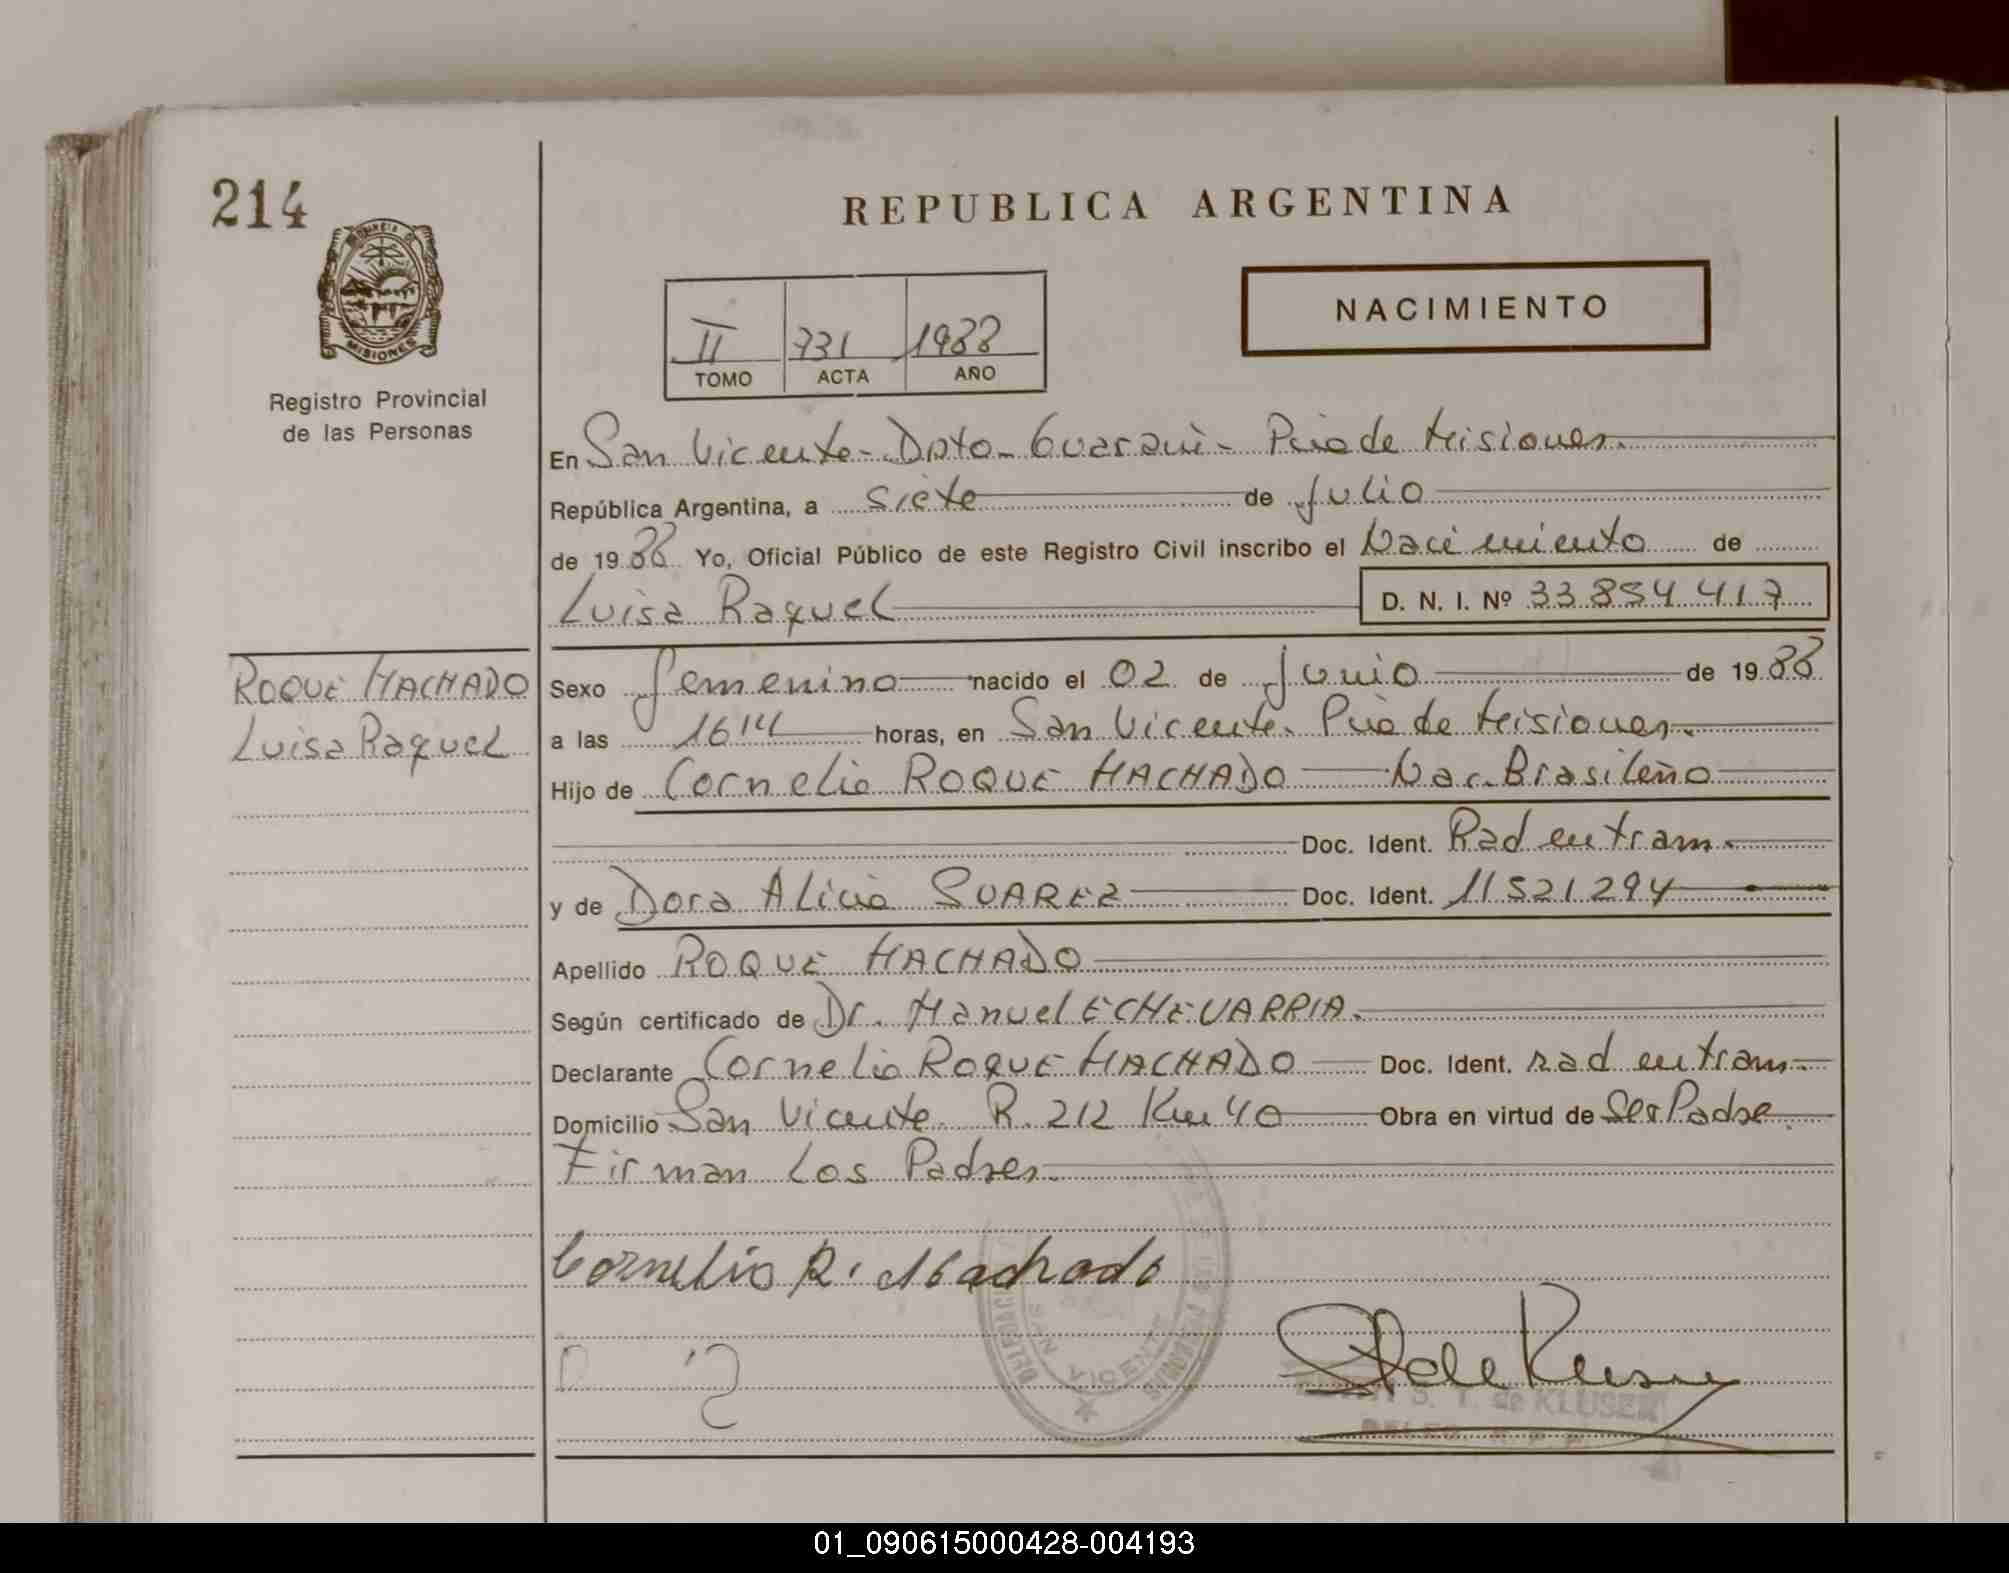 214
REPUBLICA ARGENTINA
NACIMIENTO
II 731 1988
TOMO ACTA AÑO
MISIONES
Registro Provincial
de las Personas
En San Vicente - Dpto - Guaraní - Pcia de Misiones.
República Argentina, a siete de Julio
de 1988 Yo, Oficial Público de este Registro Civil inscribo el Nacimiento de
Luisa Raquel D. N. I. Nº 33 854 417
ROQUE MACHADO
Luisa Raquel
Sexo femenino nacido el 02 de Junio de 1988
a las 16 14 horas, en San Vicente. Pcia de Misiones.
Hijo de Cornelio ROQUE MACHADO Nac. Brasileño
Doc. Ident. Rad en tram.
y de Dora Alicia SUAREZ Doc. Ident. 11 521 294
Apellido ROQUE MACHADO
Según certificado de Dr. Manuel ECHEVARRIA.
Declarante Cornelio ROQUE MACHADO Doc. Ident. rad en tram.
Domicilio San Vicente R. 212 Km 40 Obra en virtud de Ser Padre.
Firman los Padres.
Cornelio R. Machado
SAN VICENTE
S. T. de KLUSEN
DELEG. R. P. P.
01_090615000428-004193